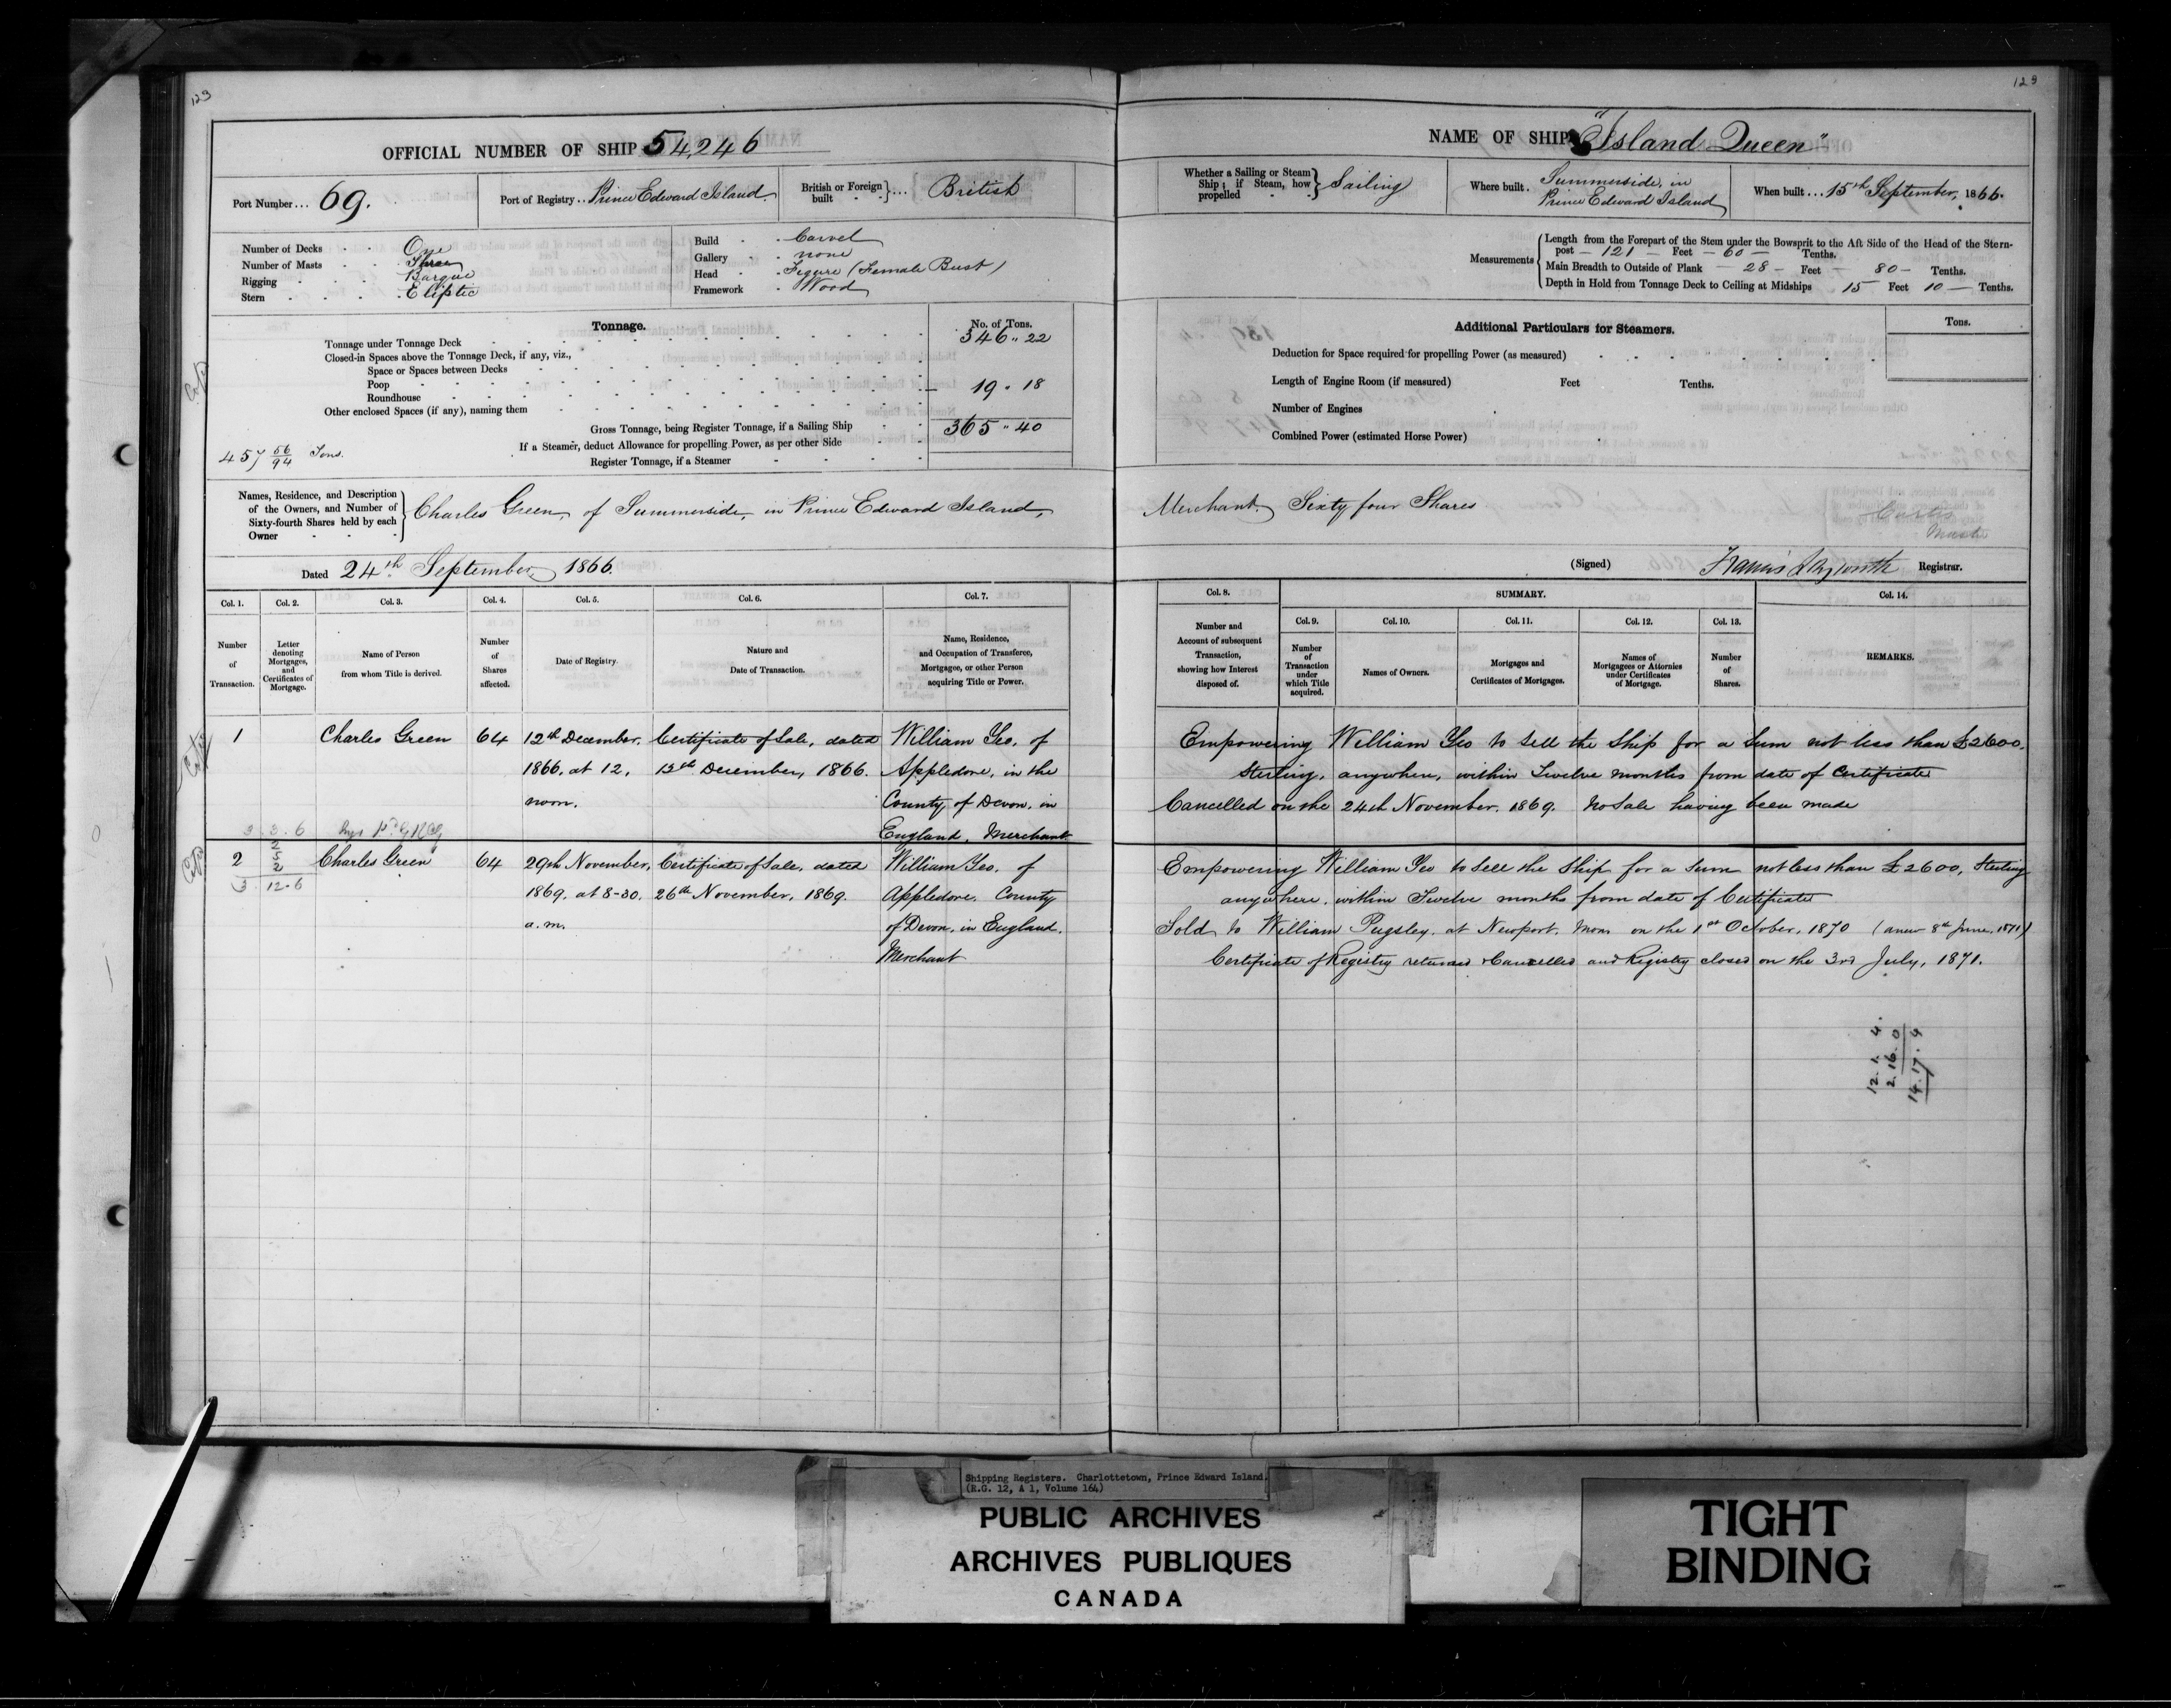 123
123
OFFICIAL NUMBER OF SHIP 54,246
NAME OF SHIP "Island Queen"
Port Number ... 69.
Port of Registry .. Prince Edward Island.
British or Foreign built ... British
Whether a Sailing or Steam Ship; if Steam, how propelled Sailing
Where built . Summerside, in Prince Edward Island
When built ... 15th September, 1866.
Number of Decks One
Number of Masts Three
Rigging Barque
Stern Eliptic
Build Carvel
Gallery none
Head Figure (Female Bust)
Framework Wood
Measurements
Length from the Forepart of the Stem under the Bowsprit to the Aft Side of the Head of the Stern-
post - 121 - Feet - 60 - Tenths.
Main Breadth to Outside of Plank - 28 - Feet - 80 - Tenths.
Depth in Hold from Tonnage Deck to Ceiling at Midships 15 Feet 10 - Tenths.
Tonnage. No. of Tons.
Tonnage under Tonnage Deck 346 " 22
Closed-in Spaces above the Tonnage Deck, if any, viz.,
Space or Spaces between Decks
Poop 19 " 18
Roundhouse
Other enclosed Spaces (if any), naming them
Gross Tonnage, being Register Tonnage, if a Sailing Ship 365 " 40
If a Steamer, deduct Allowance for propelling Power, as per other Side
Register Tonnage, if a Steamer
457 56/94 Tons.
Additional Particulars for Steamers. Tons.
Deduction for Space required for propelling Power (as measured)
Length of Engine Room (if measured) Feet Tenths.
Number of Engines
Combined Power (estimated Horse Power)
Names, Residence, and Description
of the Owners, and Number of
Sixty-fourth Shares held by each
Owner
Charles Green, of Summerside, in Prince Edward Island,
Merchant. Sixty four Shares
Dated 24th September, 1866.
(Signed) Registrar.
Col. 1. Col. 2. Col. 3. Col. 4. Col. 5. Col. 6. Col. 7.
Number of Transaction.
Letter denoting Mortgages, and Certificates of Mortgage.
Name of Person from whom Title is derived.
Number of Shares affected.
Date of Registry.
Nature and Date of Transaction.
Name, Residence, and Occupation of Transferee, Mortgagee, or other Person acquiring Title or Power.
Col. 8. SUMMARY. Col. 14.
Col. 9. Col. 10. Col. 11. Col. 12. Col. 13.
Number and Account of subsequent Transaction, showing how Interest disposed of.
Number of Transaction under which Title acquired.
Names of Owners.
Mortgages and Certificates of Mortgages.
Names of Mortgagees or Attornies under Certificates of Mortgage.
Number of Shares.
REMARKS.
1 Charles Green 64 12th December, Certificate of Sale, dated William Yeo, of
1866, at 12, 12th December, 1866. Appledore, in the
noon. County of Devon, in
England, Merchant
Empowering William Yeo to sell the Ship for a Sum not less than £2600,
Sterling, anywhere, within Twelve months from date of Certificate
Cancelled on the 24th November, 1869. No Sale having been made
3 . 3 . 6
2 Charles Green 64 29th November, Certificate of Sale, dated William Yeo, of
1869, at 8-30, 26th November, 1869. Appledore, County
a.m. of Devon, in England.
Merchant
2
5
2
3 . 12 . 6
Empowering William Yeo to sell the Ship for a Sum not less than £2600, Sterling
anywhere, within Twelve months from date of Certificate
Sold to William Pugsley, at Newport, Mon on the 1st October, 1870 (anew 8th June, 1871)
Certificate of Registry returned & Cancelled and Registry closed on the 3rd July, 1871.
12. 1. 4.
2. 16. 0
14. 17. 4
Shipping Registers. Charlottetown, Prince Edward Island.
(R.G. 12, A 1, Volume 164)
PUBLIC ARCHIVES
ARCHIVES PUBLIQUES
CANADA
TIGHT
BINDING